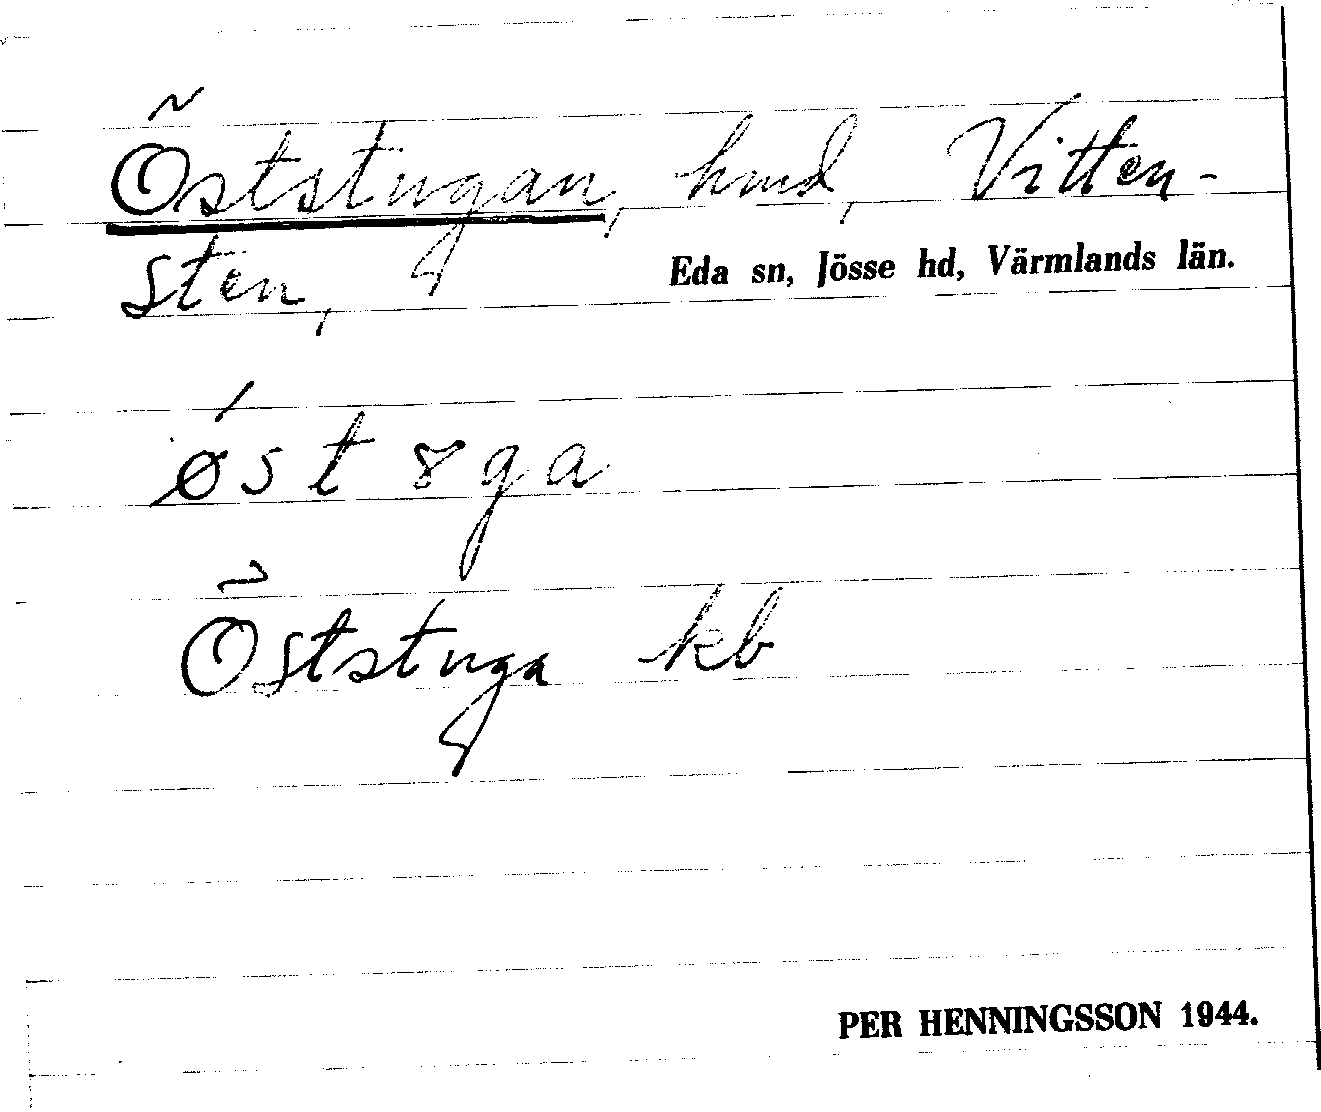 Öststugan, hmd, Vitten-
sten,
Eda sn, Jösse hd, Värmlands län.
ǿst 8ga
Öststuga kb
PER HENNINGSSON 1944.